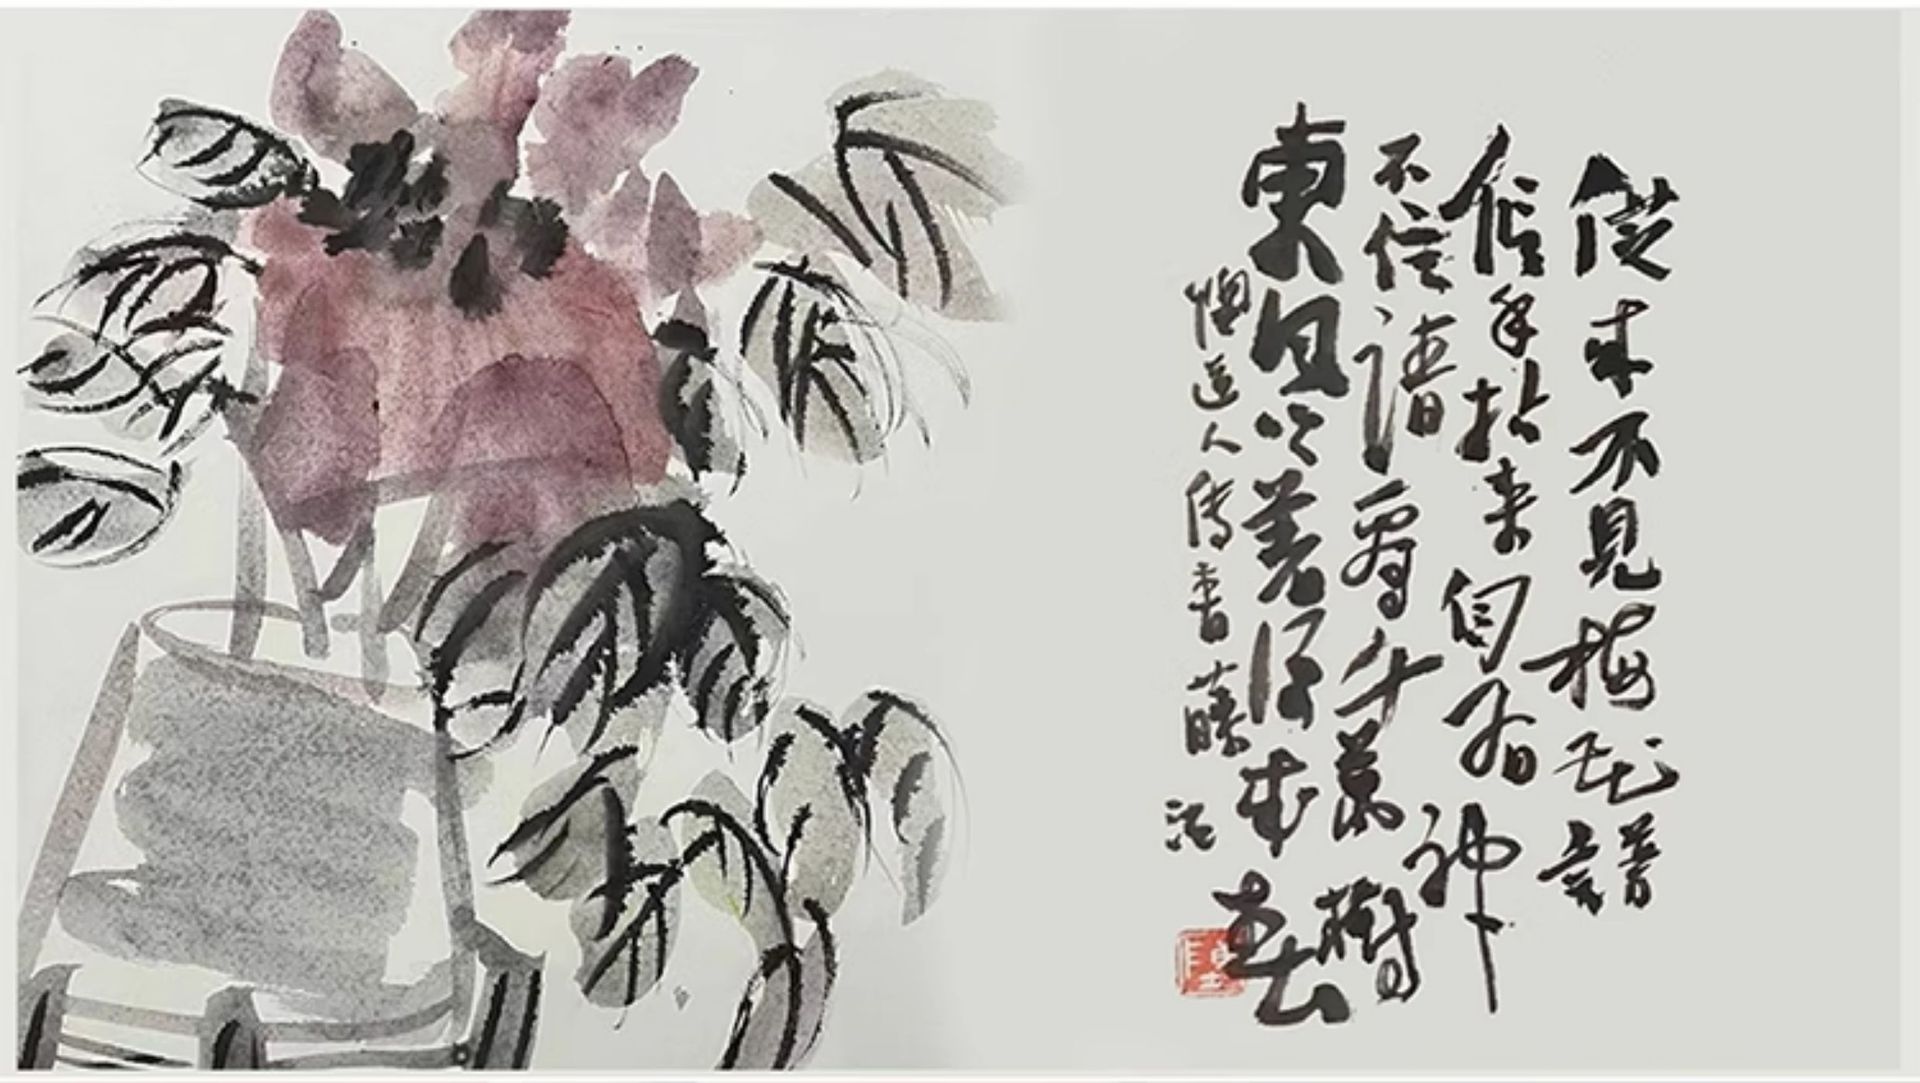 從来不見梅花譜
信手拈来自有神
不信請看千萬樹
東風吹着便成春
道人書